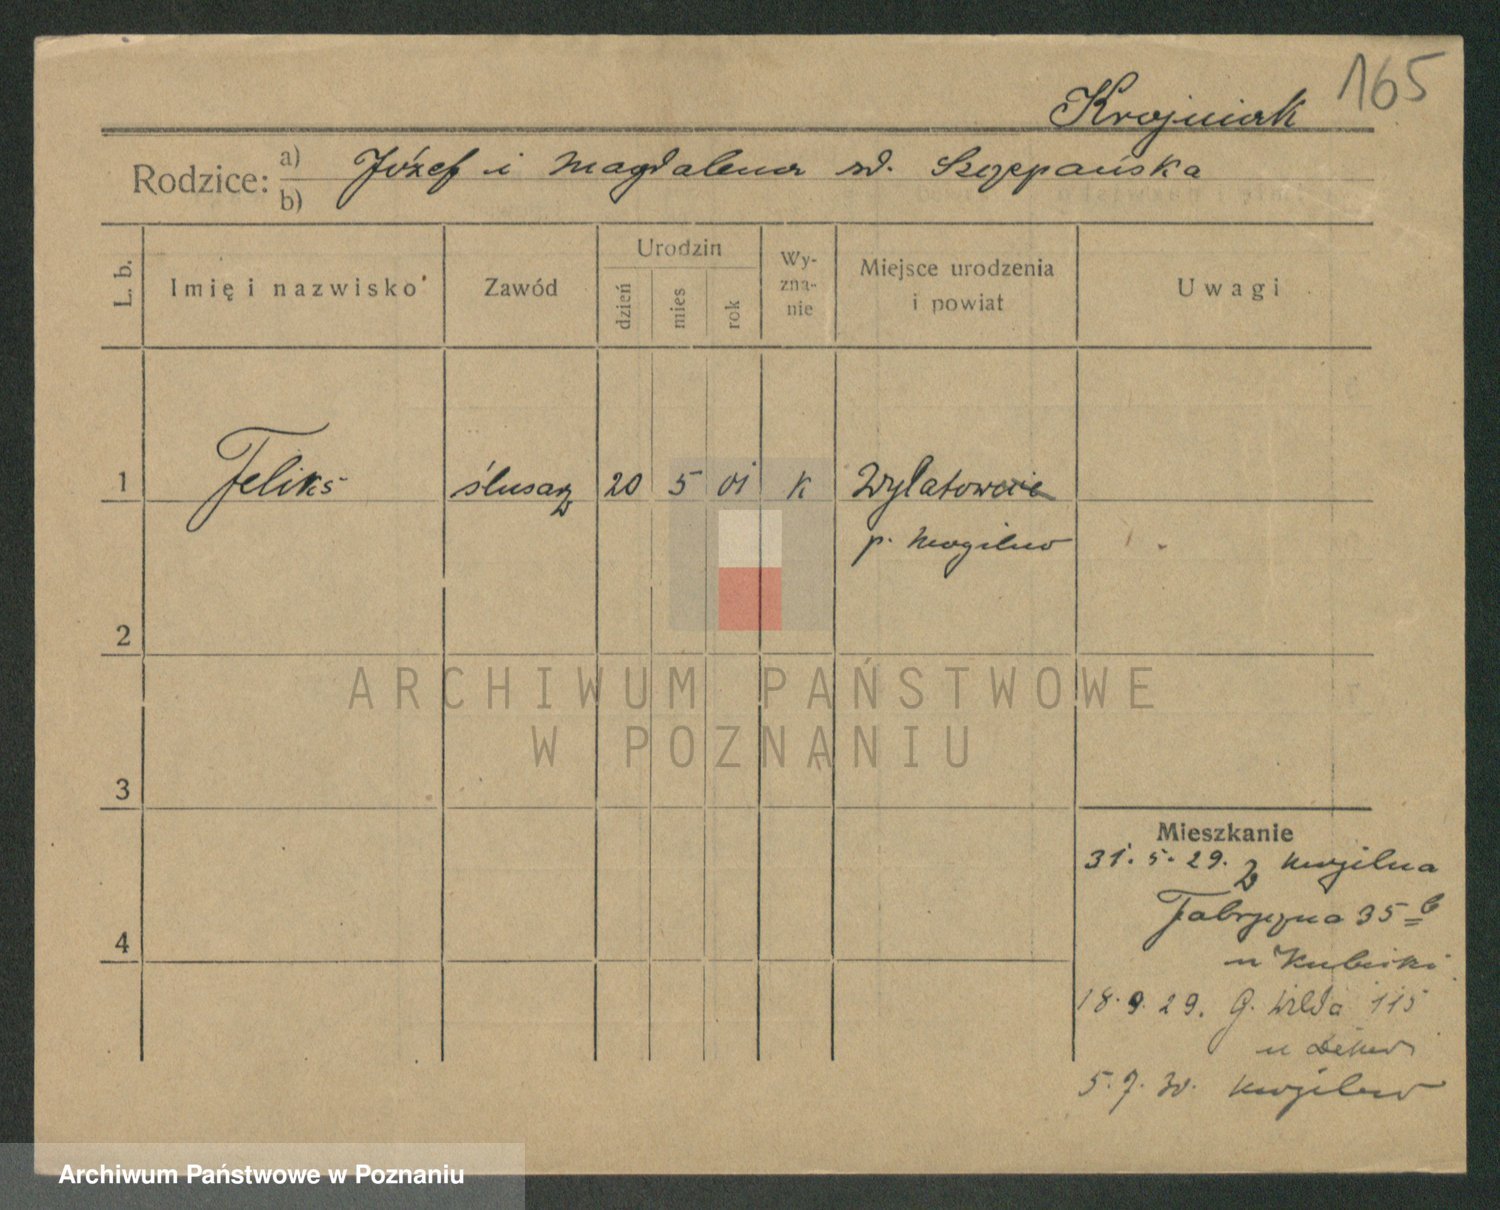 165
Krojniak
Rodzice: a) Józef i Magdalena zd. Szczepańska
b)
L. b.
Imię i nazwisko
Zawód
Urodzin
dzień
mies
rok
Wy-
zna-
nie
Miejsce urodzenia
i powiat
Uwagi
1 Feliks ślusarz 20 5 01 K Wylatowo
p. Mogilno
2
3
4
Mieszkanie
31. 5. 29. z Mogilna
Fabryczna 35 b
u Kubicki
18. 9. 29. G. Wilda 115
u
5. 7. 30. Mogilno
ARCHIWUM PAŃSTWOWE
W POZNANIU
Archiwum Państwowe w Poznaniu